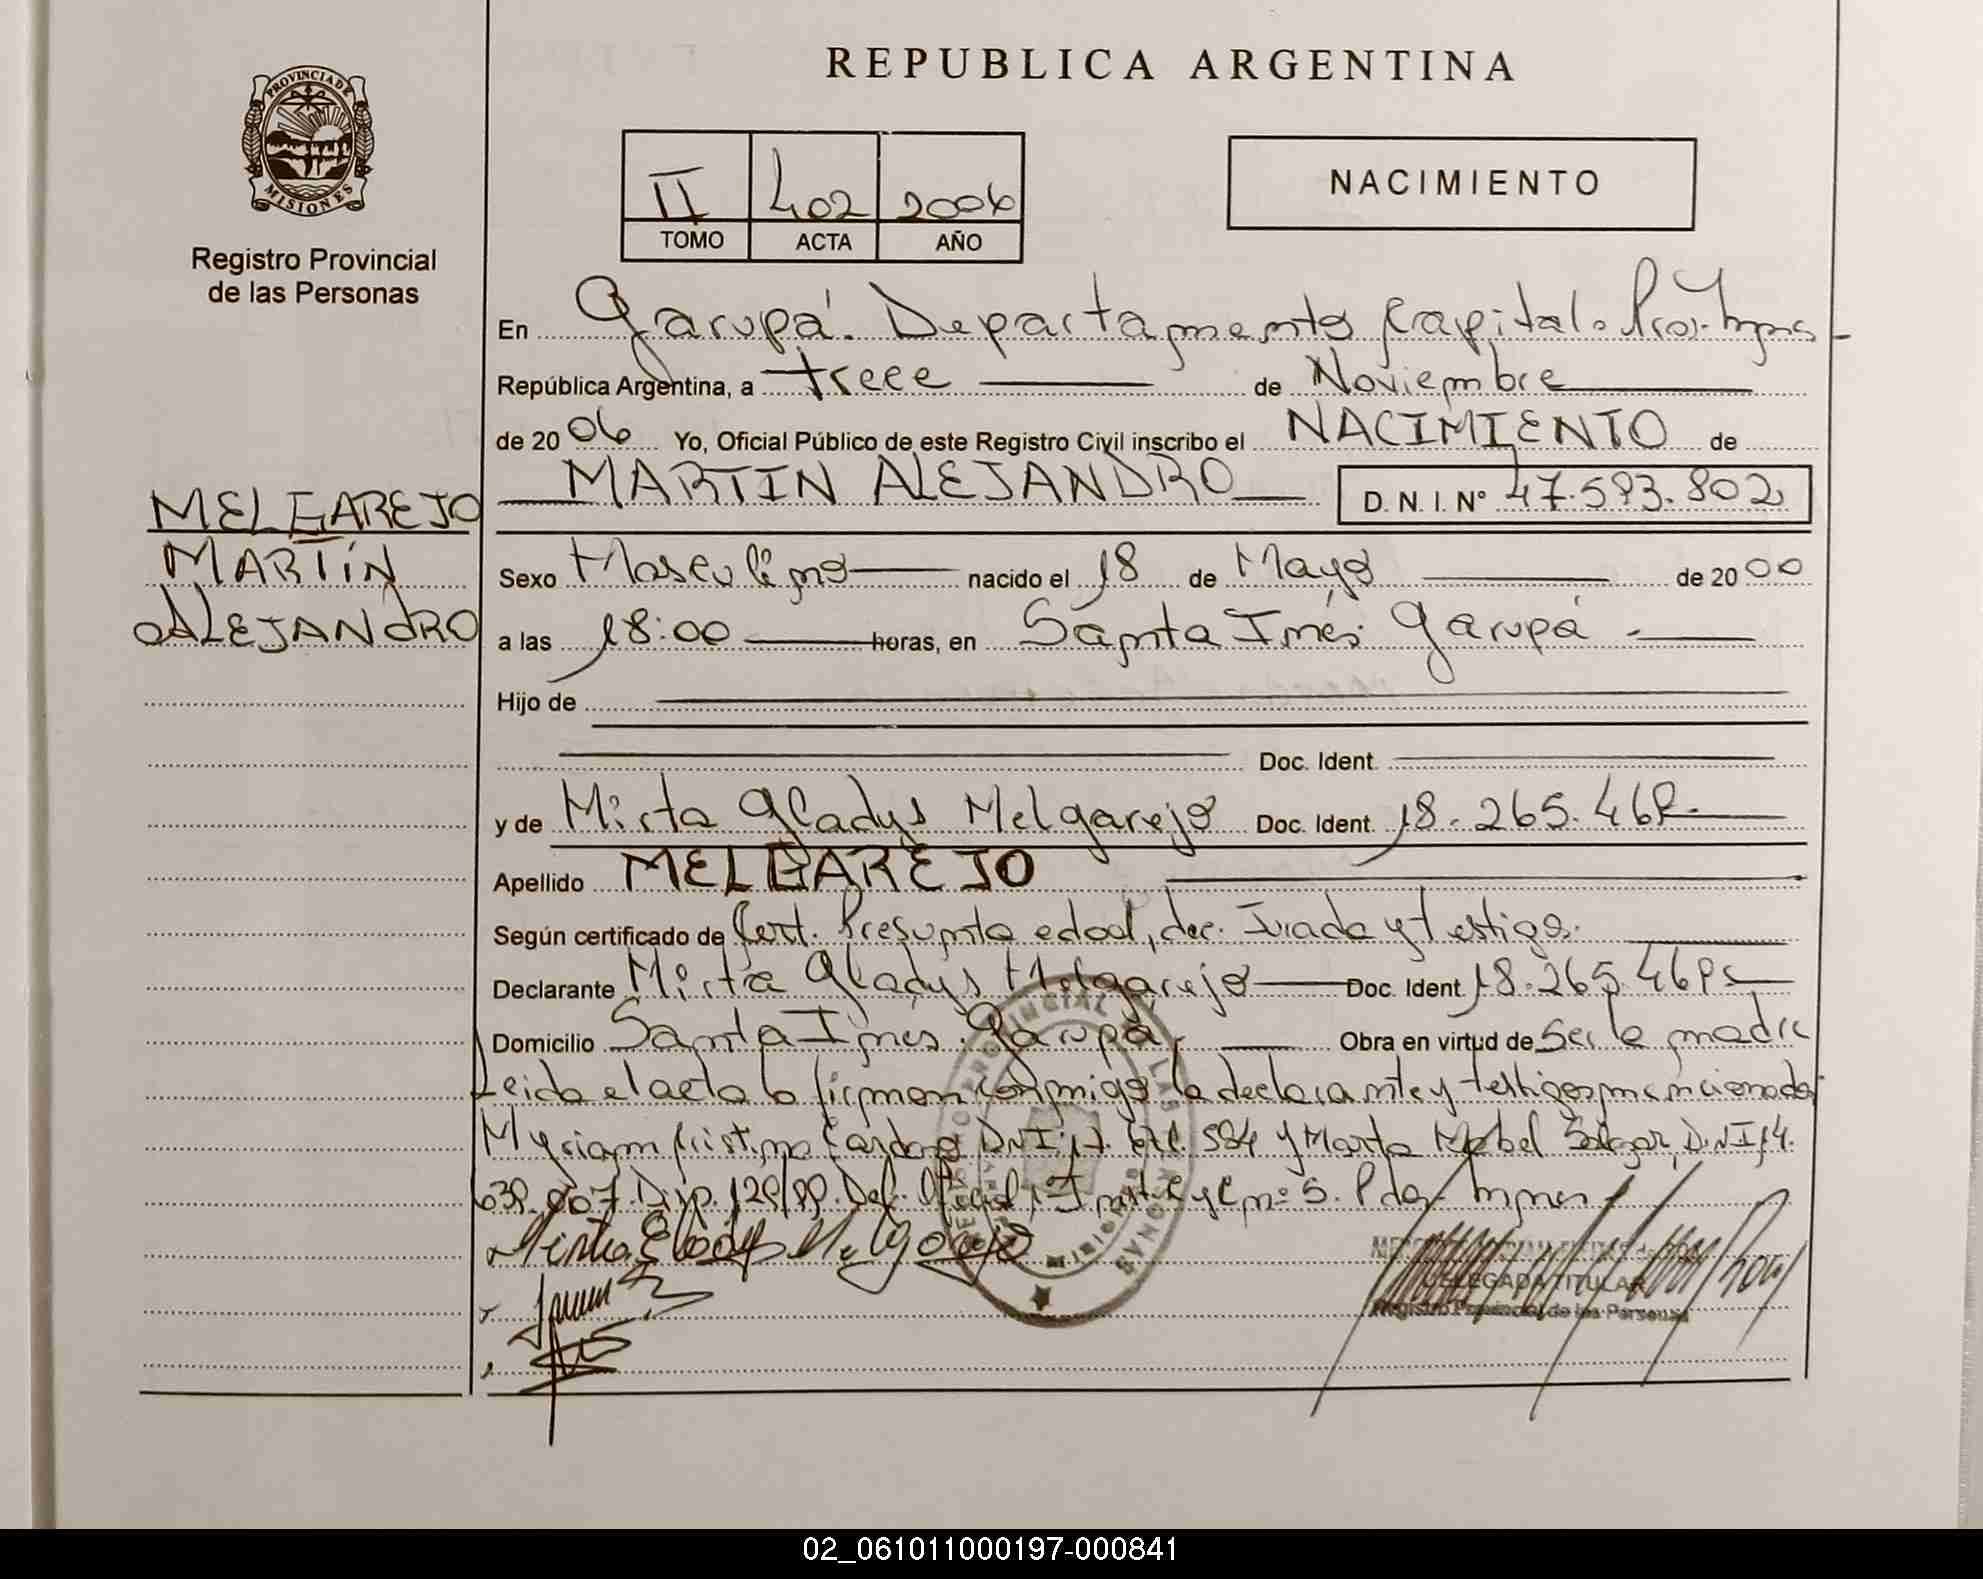 REPUBLICA ARGENTINA
PROVINCIA DE MISIONES
Registro Provincial
de las Personas
II 402 2006
TOMO ACTA AÑO
NACIMIENTO
En Garupá. Departamento Capital.
República Argentina, a trece de Noviembre
de 2006 Yo, Oficial Público de este Registro Civil inscribo el NACIMIENTO de
MARTIN ALEJANDRO D. N. I. N° 47.593.802
MELGAREJO
MARTÍN
ALEJANDRO
Sexo Masculino nacido el 18 de Mayo de 2000
a las 18:00 horas, en Santa Inés. Garupá
Hijo de
Doc. Ident.
y de Mirta Gladys Melgarejo Doc. Ident. 18.265.46
Apellido MELGAREJO
Según certificado de Cert. Presunta edad, dec. Jurada y testigo.
Declarante Mirta Gladys Melgarejo Doc. Ident. 18.265.46
Domicilio Santa Inés. Garupá Obra en virtud de Ser la madre
Leida el acta la firman conmigo la declarante y testigos mencionados
Myriam Cristina Cardozo D.N.I. 584 y Marta Mabel D.N.I 14.
007. Disp. Def. Oficial
Mirta Gladys Melgarejo
DELEGADA TITULAR
Registro Provincial de las Personas
02_061011000197-000841